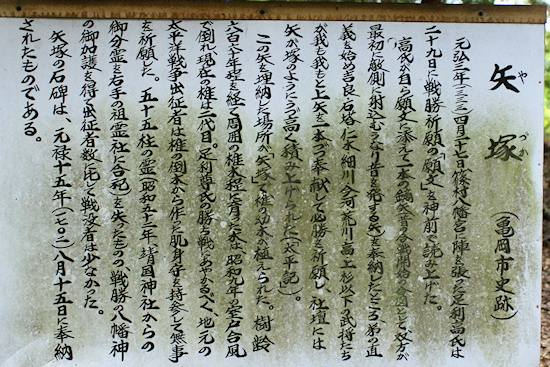 矢塚
や
づか
(亀岡市史跡)
元弘三年(一三三三)四月二十七日篠村八幡宮に陣を張った足利高氏は
二十九日に戦勝祈願の「願文」を神前で読み上げた。
高氏が自ら願文に添えて一本の鏑矢(合戦開始の合図として双方が
最初に敵側に射込むうなり音を発する矢)を奉納したところ、弟の直
義を始め吉良・石塔・仁木・細川・今河・荒川・高・上杉以下の武将たち
が我も我もと上矢を一本づつ奉献して必勝を祈願し、社壇には
矢が塚のようにうづ高く積み上げられた(「太平記」)。
この矢を埋納した場所が「矢塚」で椎の幼木が植えられた。樹齢
六百六年程を経て周囲の椎木程に育った木は昭和九年の室戸台風
で倒れ現在の椎は二代目。足利尊氏の勝ち戦にあやかるべく、地元の
太平洋戦争出征者は椎の倒木から作った肌身守を持参して無事
を祈願した。五十五柱の霊(昭和五十二年靖国神社からの
御分霊を右手の祖霊社に合祀)を失ったものの、戦勝の八幡神
の御加護を得て出征者数に比して戦没者は少なかった。
矢塚の石碑は、元禄十五年(一七〇二)八月十五日に奉納
されたものである。